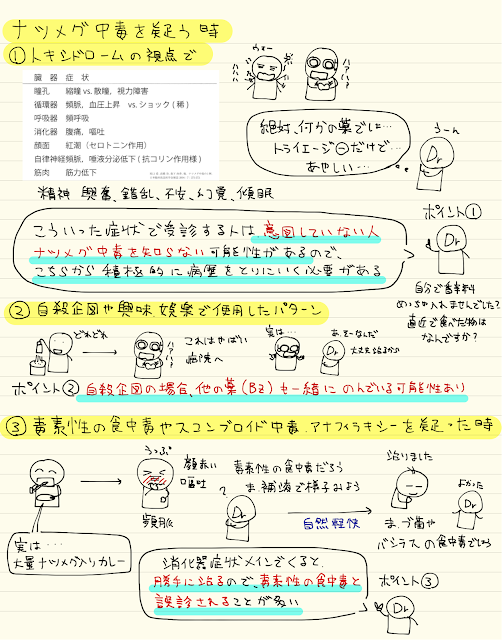 ナツメグ中毒を疑う時
①トキシドロームの視点で
臓 器 症 状
瞳孔 縮瞳 vs. 散瞳，視力障害
循環器 頻脈，血圧上昇 vs. ショック(稀)
呼吸器 頻呼吸
消化器 腹痛，嘔吐
顔面 紅潮(セロトニン作用)
自律神経 頻脈，唾液分泌低下(抗コリン作用様)
筋肉 筋力低下
精神 興奮、錯乱、不安、幻覚、傾眠
ウォー
ハァ
絶対、何かの薬でしょ…
トライエージ⊖だけど…
あやしい…
うーん
Dr
こういった症状で受診する人は意図していない人
ナツメグ中毒を知らない可能性があるので、
こちらから積極的に病歴をとりにいく必要がある
ポイント①
Dr
自分で香辛料
めっちゃ入れませんでした?
直近で食べた物は
なんですか?
②自殺企図や興味、娯楽で使用したパターン
どれどれ
これはやばい
病院へ
ハァ
実は…
あ、そーなんだ
大丈夫
Dr
ポイント②自殺企図の場合、他の薬(Bz)も一緒にのんでいる可能性あり
③毒素性の食中毒やスコンブロイド中毒、アナフィラキシーを疑った時
うっぷ
顔赤い
嘔吐
頻脈
毒素性の食中毒だろう
ま、補液で様子みよう
?
Dr
自然軽快
治りました
よかった
Dr
ま、ブ菌や
バシラスの食中毒でしょう
実は…
大量ナツメグ入りカレー
消化器症状メインでくると、
勝手に治るので、毒素性の食中毒と
誤診されることが多い
ポイント③
Dr